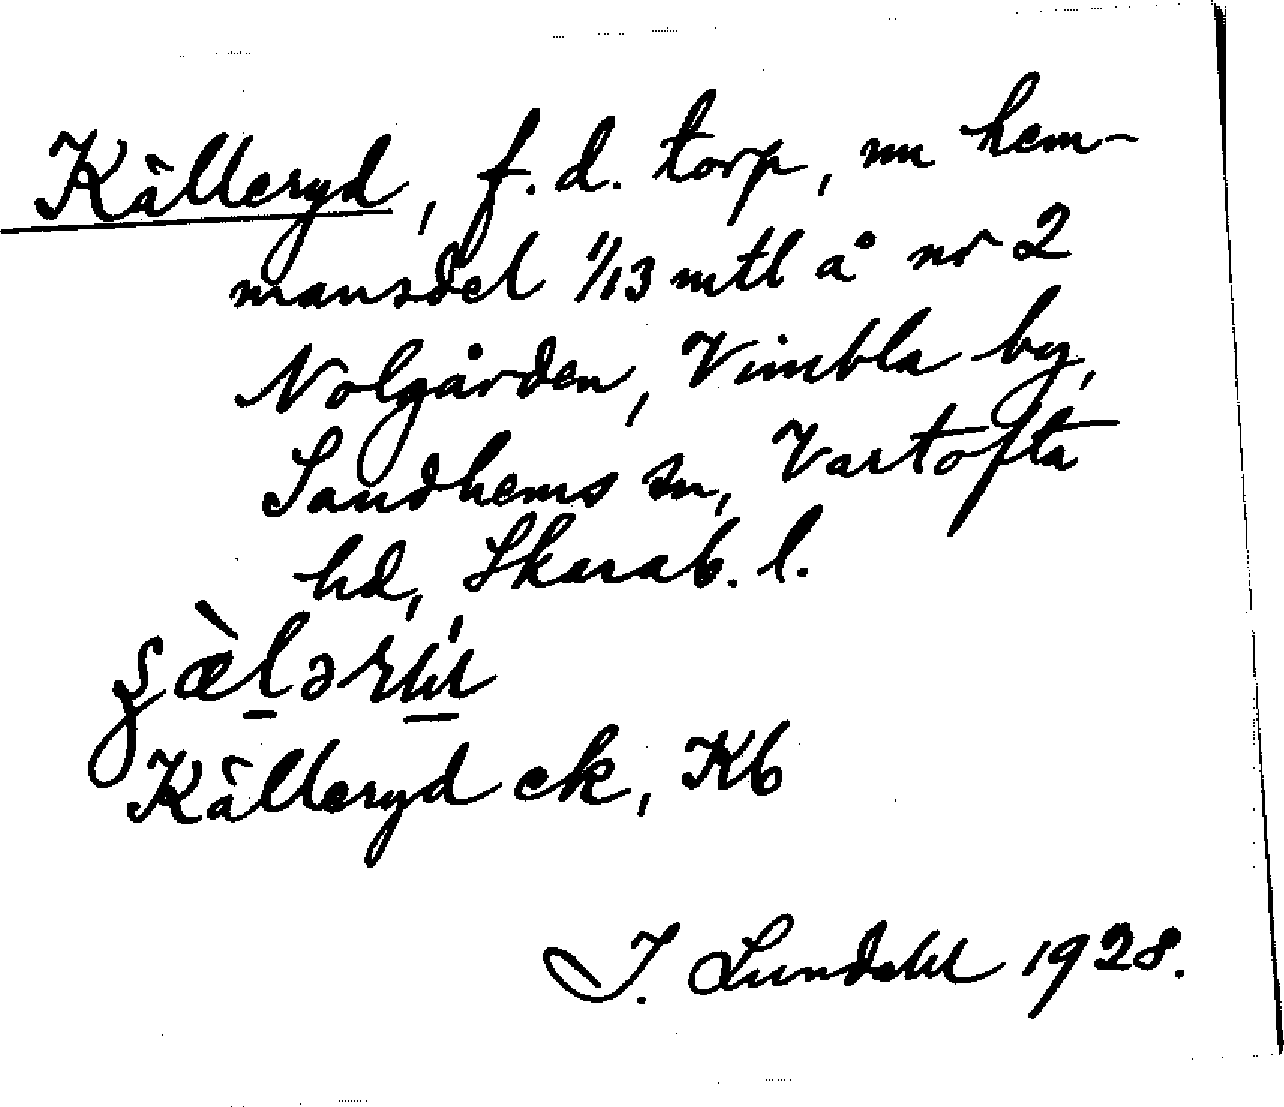 Källeryd, f.d. torp, nu hem-
mansdel 1/13 mtl å nr 2
Nolgården, Vimbla by,
Sandhems sn, Vartofta
hd, Skarab. l.
Källeryd ek, Kb
J. Lundahl 1928.